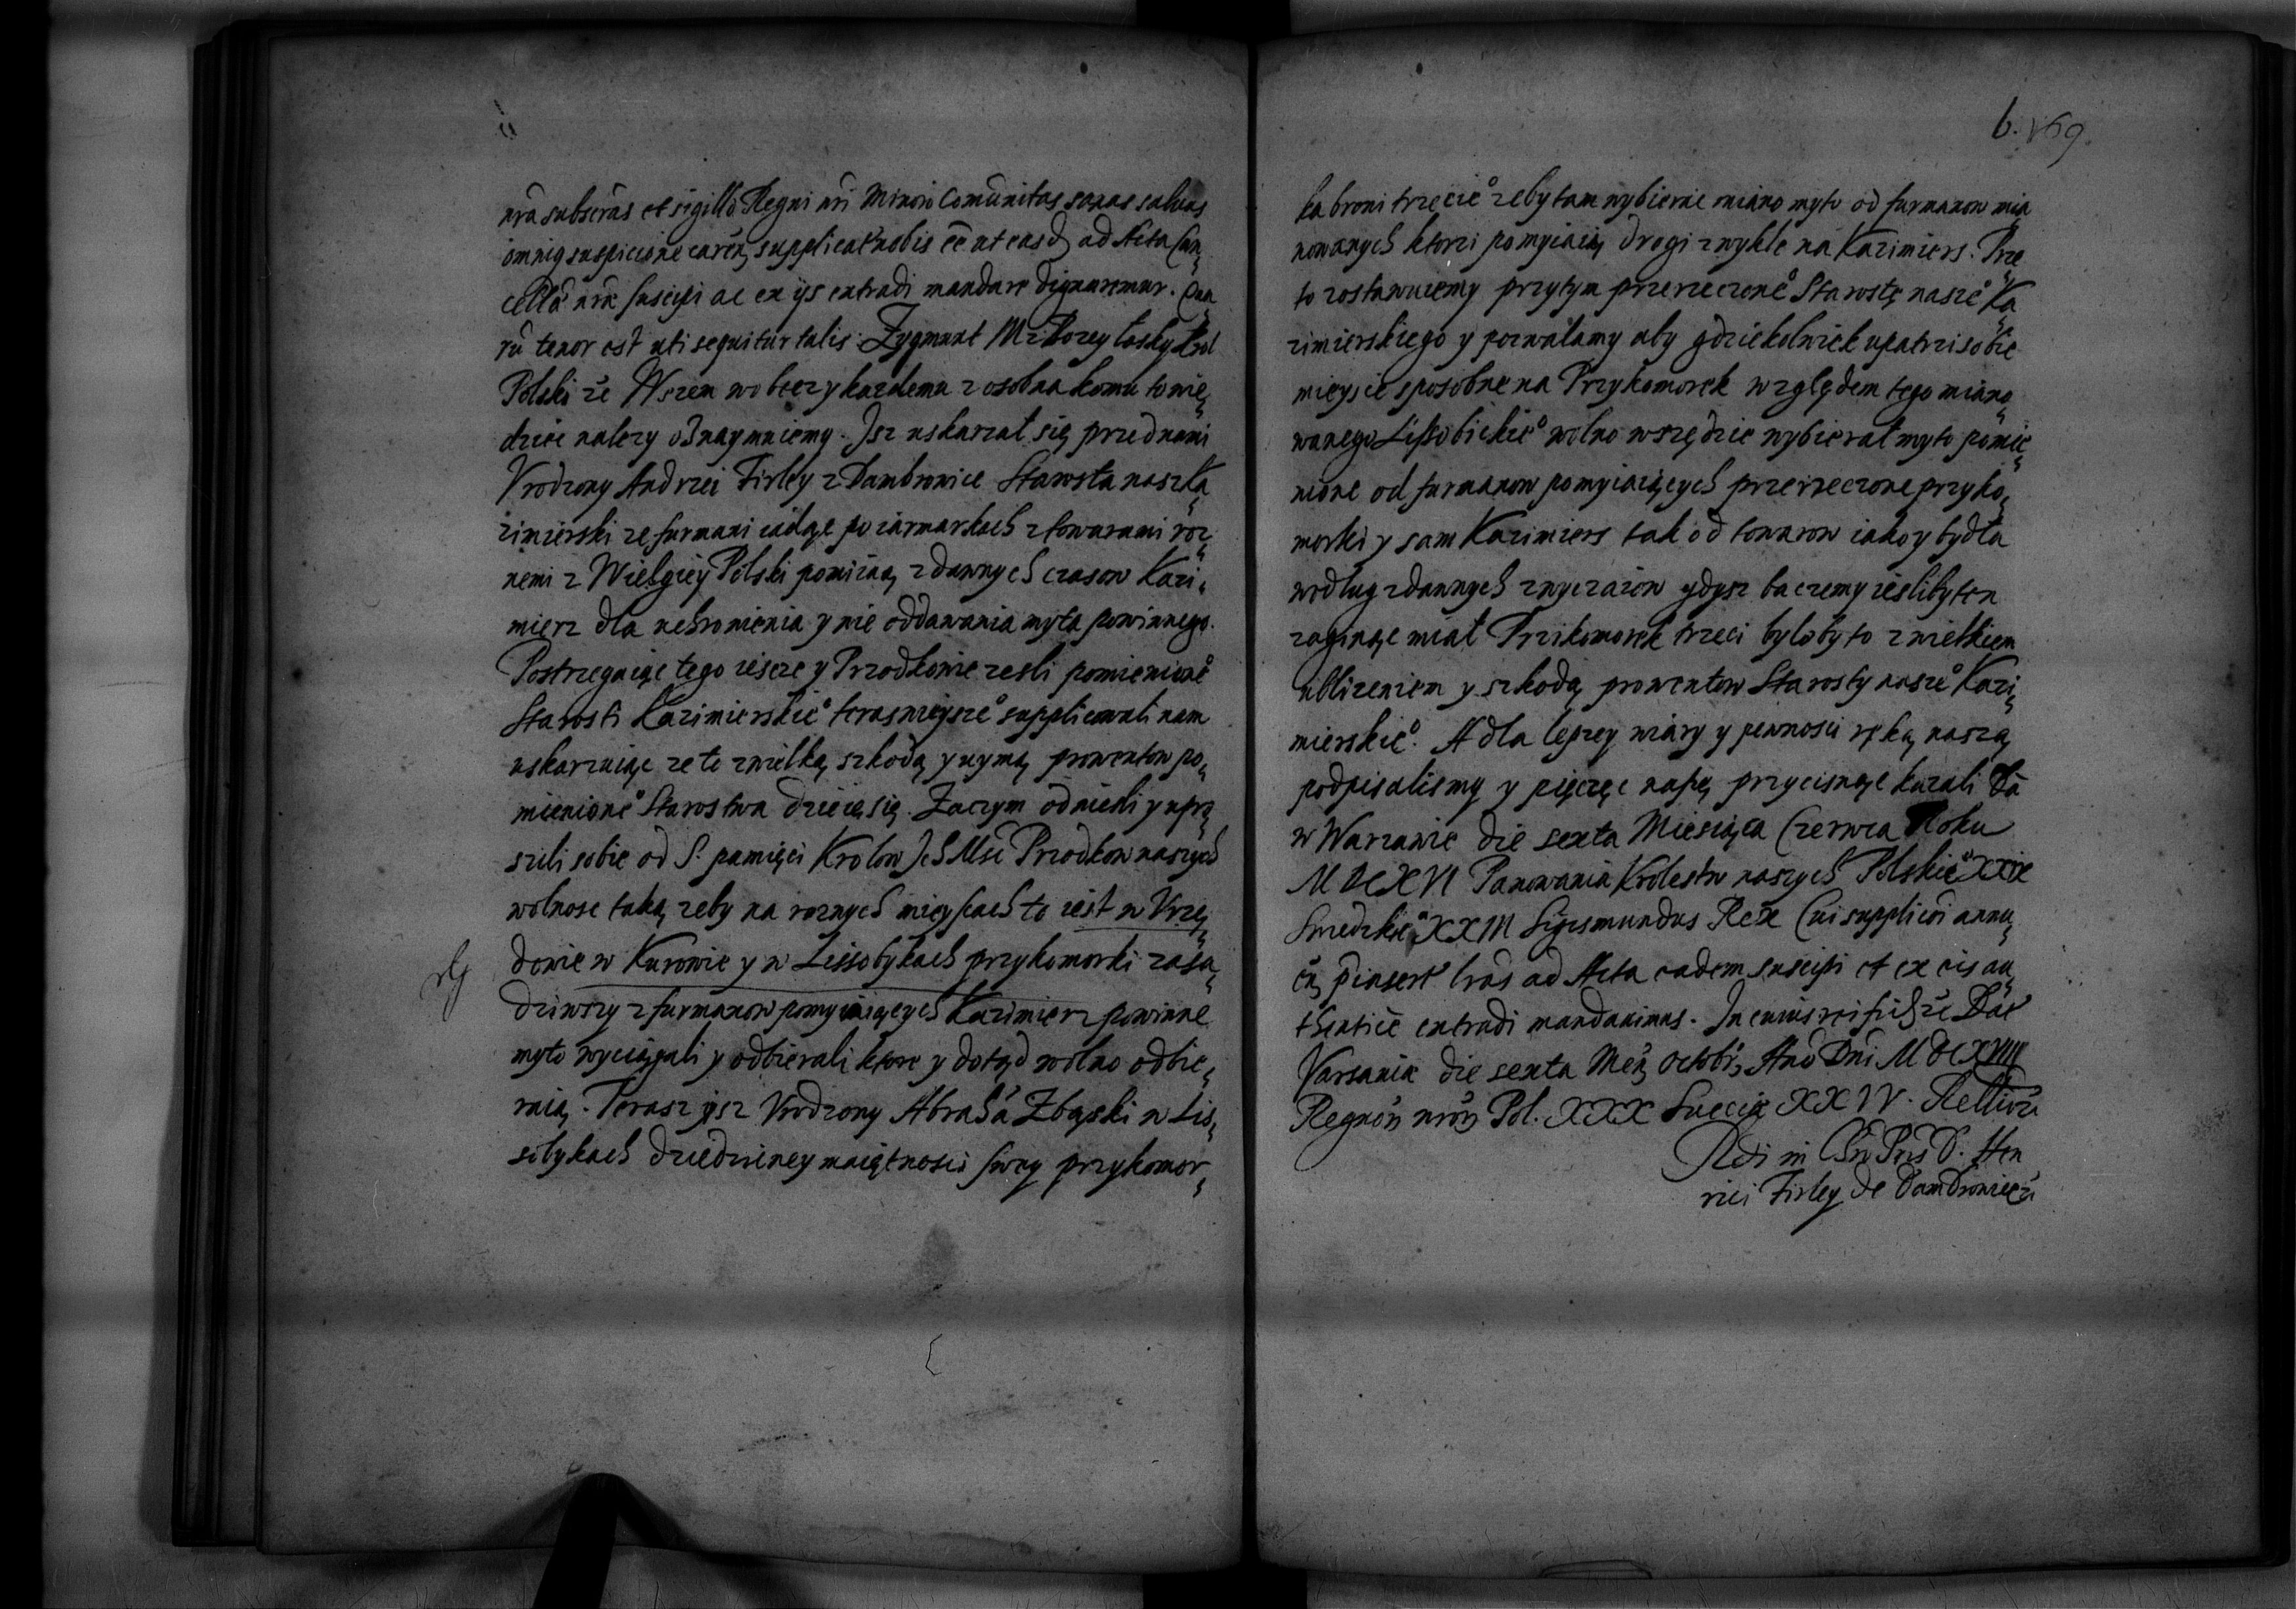 nra subscras et sigillo Regni nri Minori Comunitas sanas salvas
omniq suspicione caren supplicat nobis ee ut easd ad Acta Can„
cellã nrae suscipi ac ex ijs extradi mandare dignaremur. Qua„
rũ tenor est uti sequitur talis. Zygmunt III z Bozey łasky Krol
Polski ze Wszem wobecz y kazdemu z osobna komu to wie„
dziec nalezy oznaymuiemy. Jsz uskarzał się przed nami
Vrodzony Andrzei Firley z Dambrowice Starosta nasz Ka„
zimierski ze furmani iadąc po iarmarkach z towarami roz„
nemi z Wielgiey Polski pomiiaą z dawnych czasow Kazi„
mierz dla uchronienia y nie oddawania myta powinnego.
Postrzegaiąc tego iescze y Przodkowie zesli pomienione°
Starosti Kazimierskie° terasnieysze° supplicowali nam
uskarzaiąc ze to z wielką szkodą y uymą prowentow po„
mienione° Starostwa dzieie się. Zaczym odniesli y upro„
szili sobie od S. pamięci Krolow Ich Msci Przodkow naszych
wolnosc taką zeby na roznych mieyscach to iest w Vrzę„
dowie w Kurowie y w Lissobykach przykomorki zasa„
dziwszy z furmanow pomyiaiących Kazimierz powinne
myto wyciągali y odbierali ktore y dotąd wolno odbie„
raią. Terasz ysz Vrodzony Abrahã Zbąski w Lis„
sobykach dziedziczney maiętnosci swey przykomor„
6. 169.
ka broni trzecie° zeby tam wybierac miano myto od furmanow mia
nowanych ktorzi pomyiaią drogi zwykle na Kazimiers. Prze„
to zostawuiemy przytym przerzeczone° Starostę nasze° Ka„
zimierskiego y pozwalamy aby gdziekolwiek upatrzi sobie
mieysce sposobne na Przykomorek względem tego miano„
wanego Lissobickie° wolno wszędzie wybierał myto pomie„
nione od furmanow pomyiaiących przerzeczone przyko„
morki y sam Kazimiers tak od towarow iako y bydła
według zdawnych zwyczaiow gdysz baczemy iesliby ten
zaginąc miał Przikomorek trzeci byloby to z wielkiem
ublizeniem y szkodą prowentow Starosty nasze° Kazi„
mierskie°. A dla lepszey wiary y pewnosci ręką naszą
podpisalismy y pięczęc naszę przycisnąc kazali Dã
w Warzawie die sexta Miesiąca Czerwca Roku
MDCXVI Panowania Krolestw naszych Polskie° XXIX
Swedzkie° XXIII Sigismundus Rex Cui supplicõi annu„
en pinsert lras ad Acta eadem suscipi et ex eis au„
thentice extradi mandavimus. In cuius rei fidẽ Dat
Varsaviae die sexta Mens Octobr Anõ Dni MDCXVIII
Regnor nror Pol. XXX Sueciae XXIV. Rellivã
Rdi in Chro Pris D. Hen
rici Firley de Dambrowicã